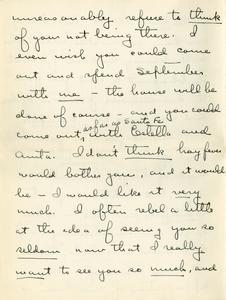 unreasonably, refuse to think
of your not being there. I
even wish you could come
out and spend September
with me – the house will be
done of course – and you could
as far as Santa Fe
come out, with Costella and
Anita. I don't think hay fever
would bother you, and it would
be – I would like it very
much. I often rebel a little
at the idea of seeing you so
seldom now that I really
want to see you so much, and